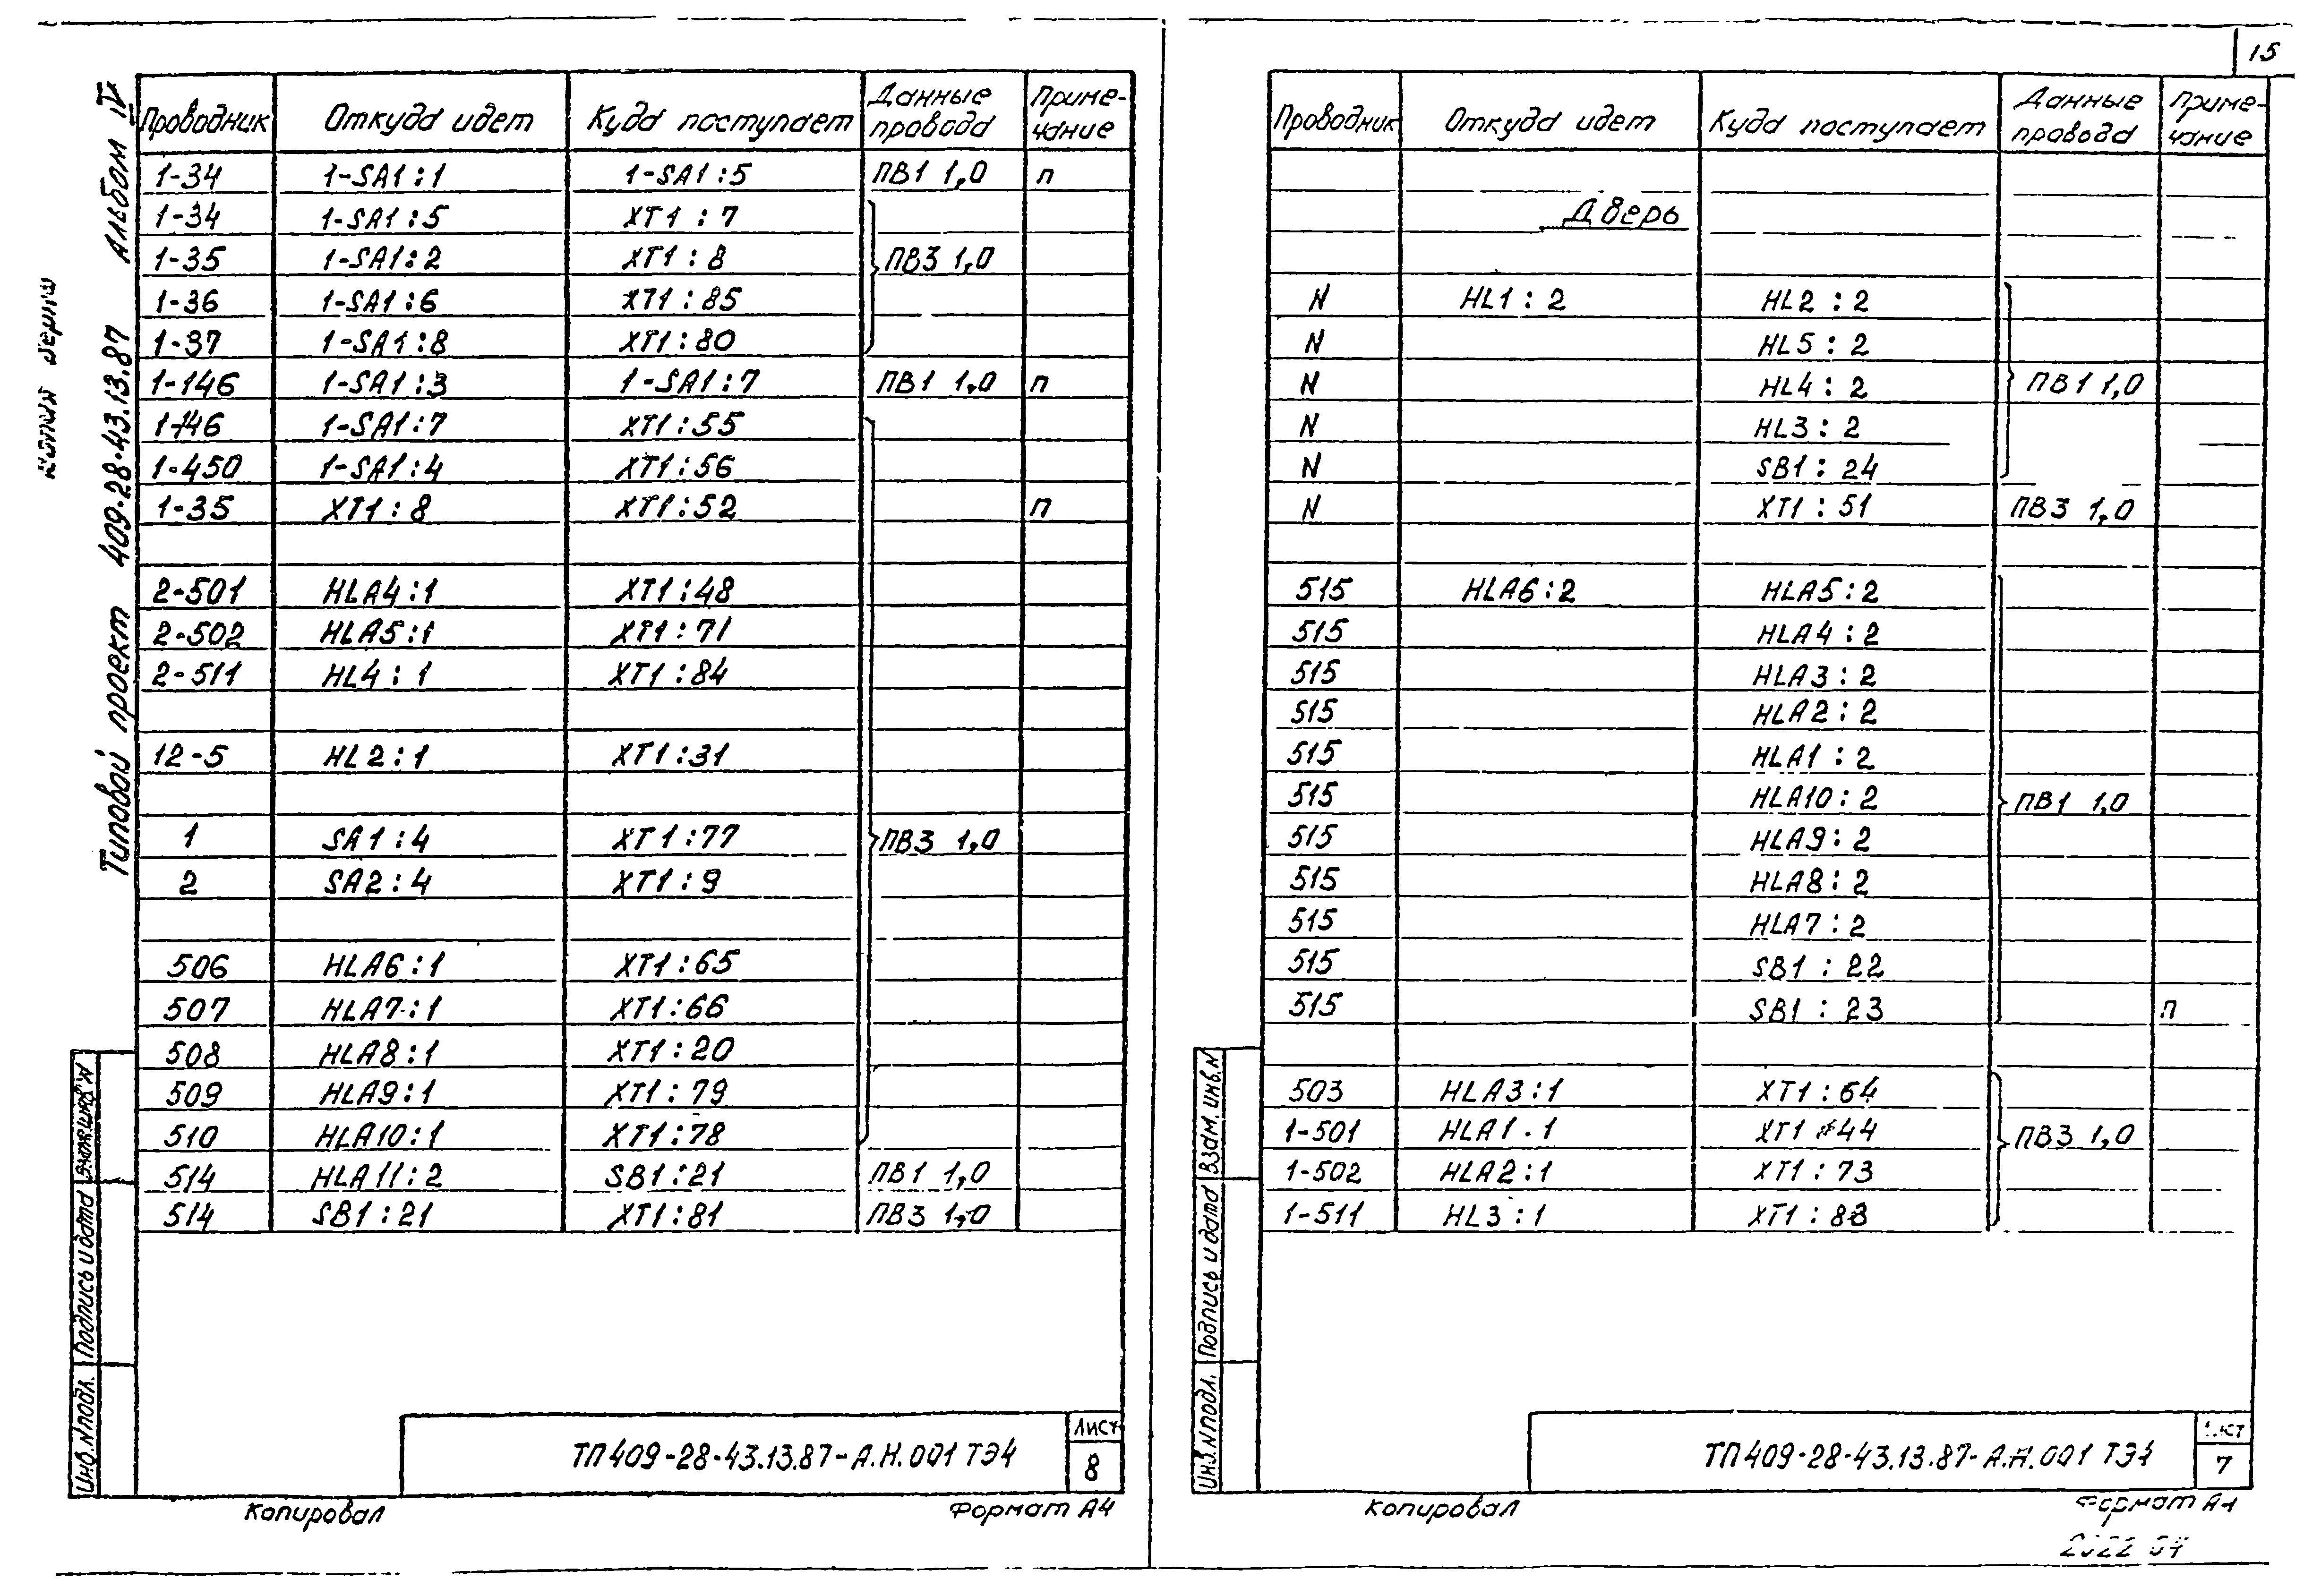 15
Альбом IV
Типовой проект 409-28-43.13.87
Проводник Откуда идет Куда поступает Данные провода Приме-чание
1-34 1-SA1:1 1-SA1:5 ПВ1 1,0 п
1-34 1-SA1:5 XT1:7
1-35 1-SA1:2 XT1:8 ПВ3 1,0
1-36 1-SA1:6 XT1:85
1-37 1-SA1:8 XT1:80
1-146 1-SA1:3 1-SA1:7 ПВ1 1,0 п
1-146 1-SA1:7 XT1:55
1-450 1-SA1:4 XT1:56
1-35 XT1:8 XT1:52 п
2-501 HLA4:1 XT1:48
2-502 HLA5:1 XT1:71
2-511 HL4:1 XT1:84
12-5 HL2:1 XT1:31
1 SA1:4 XT1:77 ПВ3 1,0
2 SA2:4 XT1:9
506 HLA6:1 XT1:65
507 HLA7:1 XT1:66
508 HLA8:1 XT1:20
509 HLA9:1 XT1:79
510 HLA10:1 XT1:78
514 HLA11:2 SB1:21 ПВ1 1,0
514 SB1:21 XT1:81 ПВ3 1,0
Инв.Nподл. Подпись и дата
ТП409-28-43.13.87-А.Н.001 ТЭ4
Лист
8
Копировал Формат А4
Проводник Откуда идет Куда поступает Данные провода Приме-чание
Дверь
N HL1:2 HL2:2
N HL5:2
N HL4:2 ПВ1 1,0
N HL3:2
N SB1:24
N XT1:51 ПВ3 1,0
515 HLA6:2 HLA5:2
515 HLA4:2
515 HLA3:2
515 HLA2:2
515 HLA1:2
515 HLA10:2 ПВ1 1,0
515 HLA9:2
515 HLA8:2
515 HLA7:2
515 SB1:22
515 SB1:23 п
503 HLA3:1 XT1:64
1-501 HLA1.1 XT1:44 ПВ3 1,0
1-502 HLA2:1 XT1:73
1-511 HL3:1 XT1:83
Инв.Nподл. Подпись и дата Взам.инв.N
ТП409-28-43.13.87-А.Н.001 ТЭ4
Лист
7
Копировал Формат А4